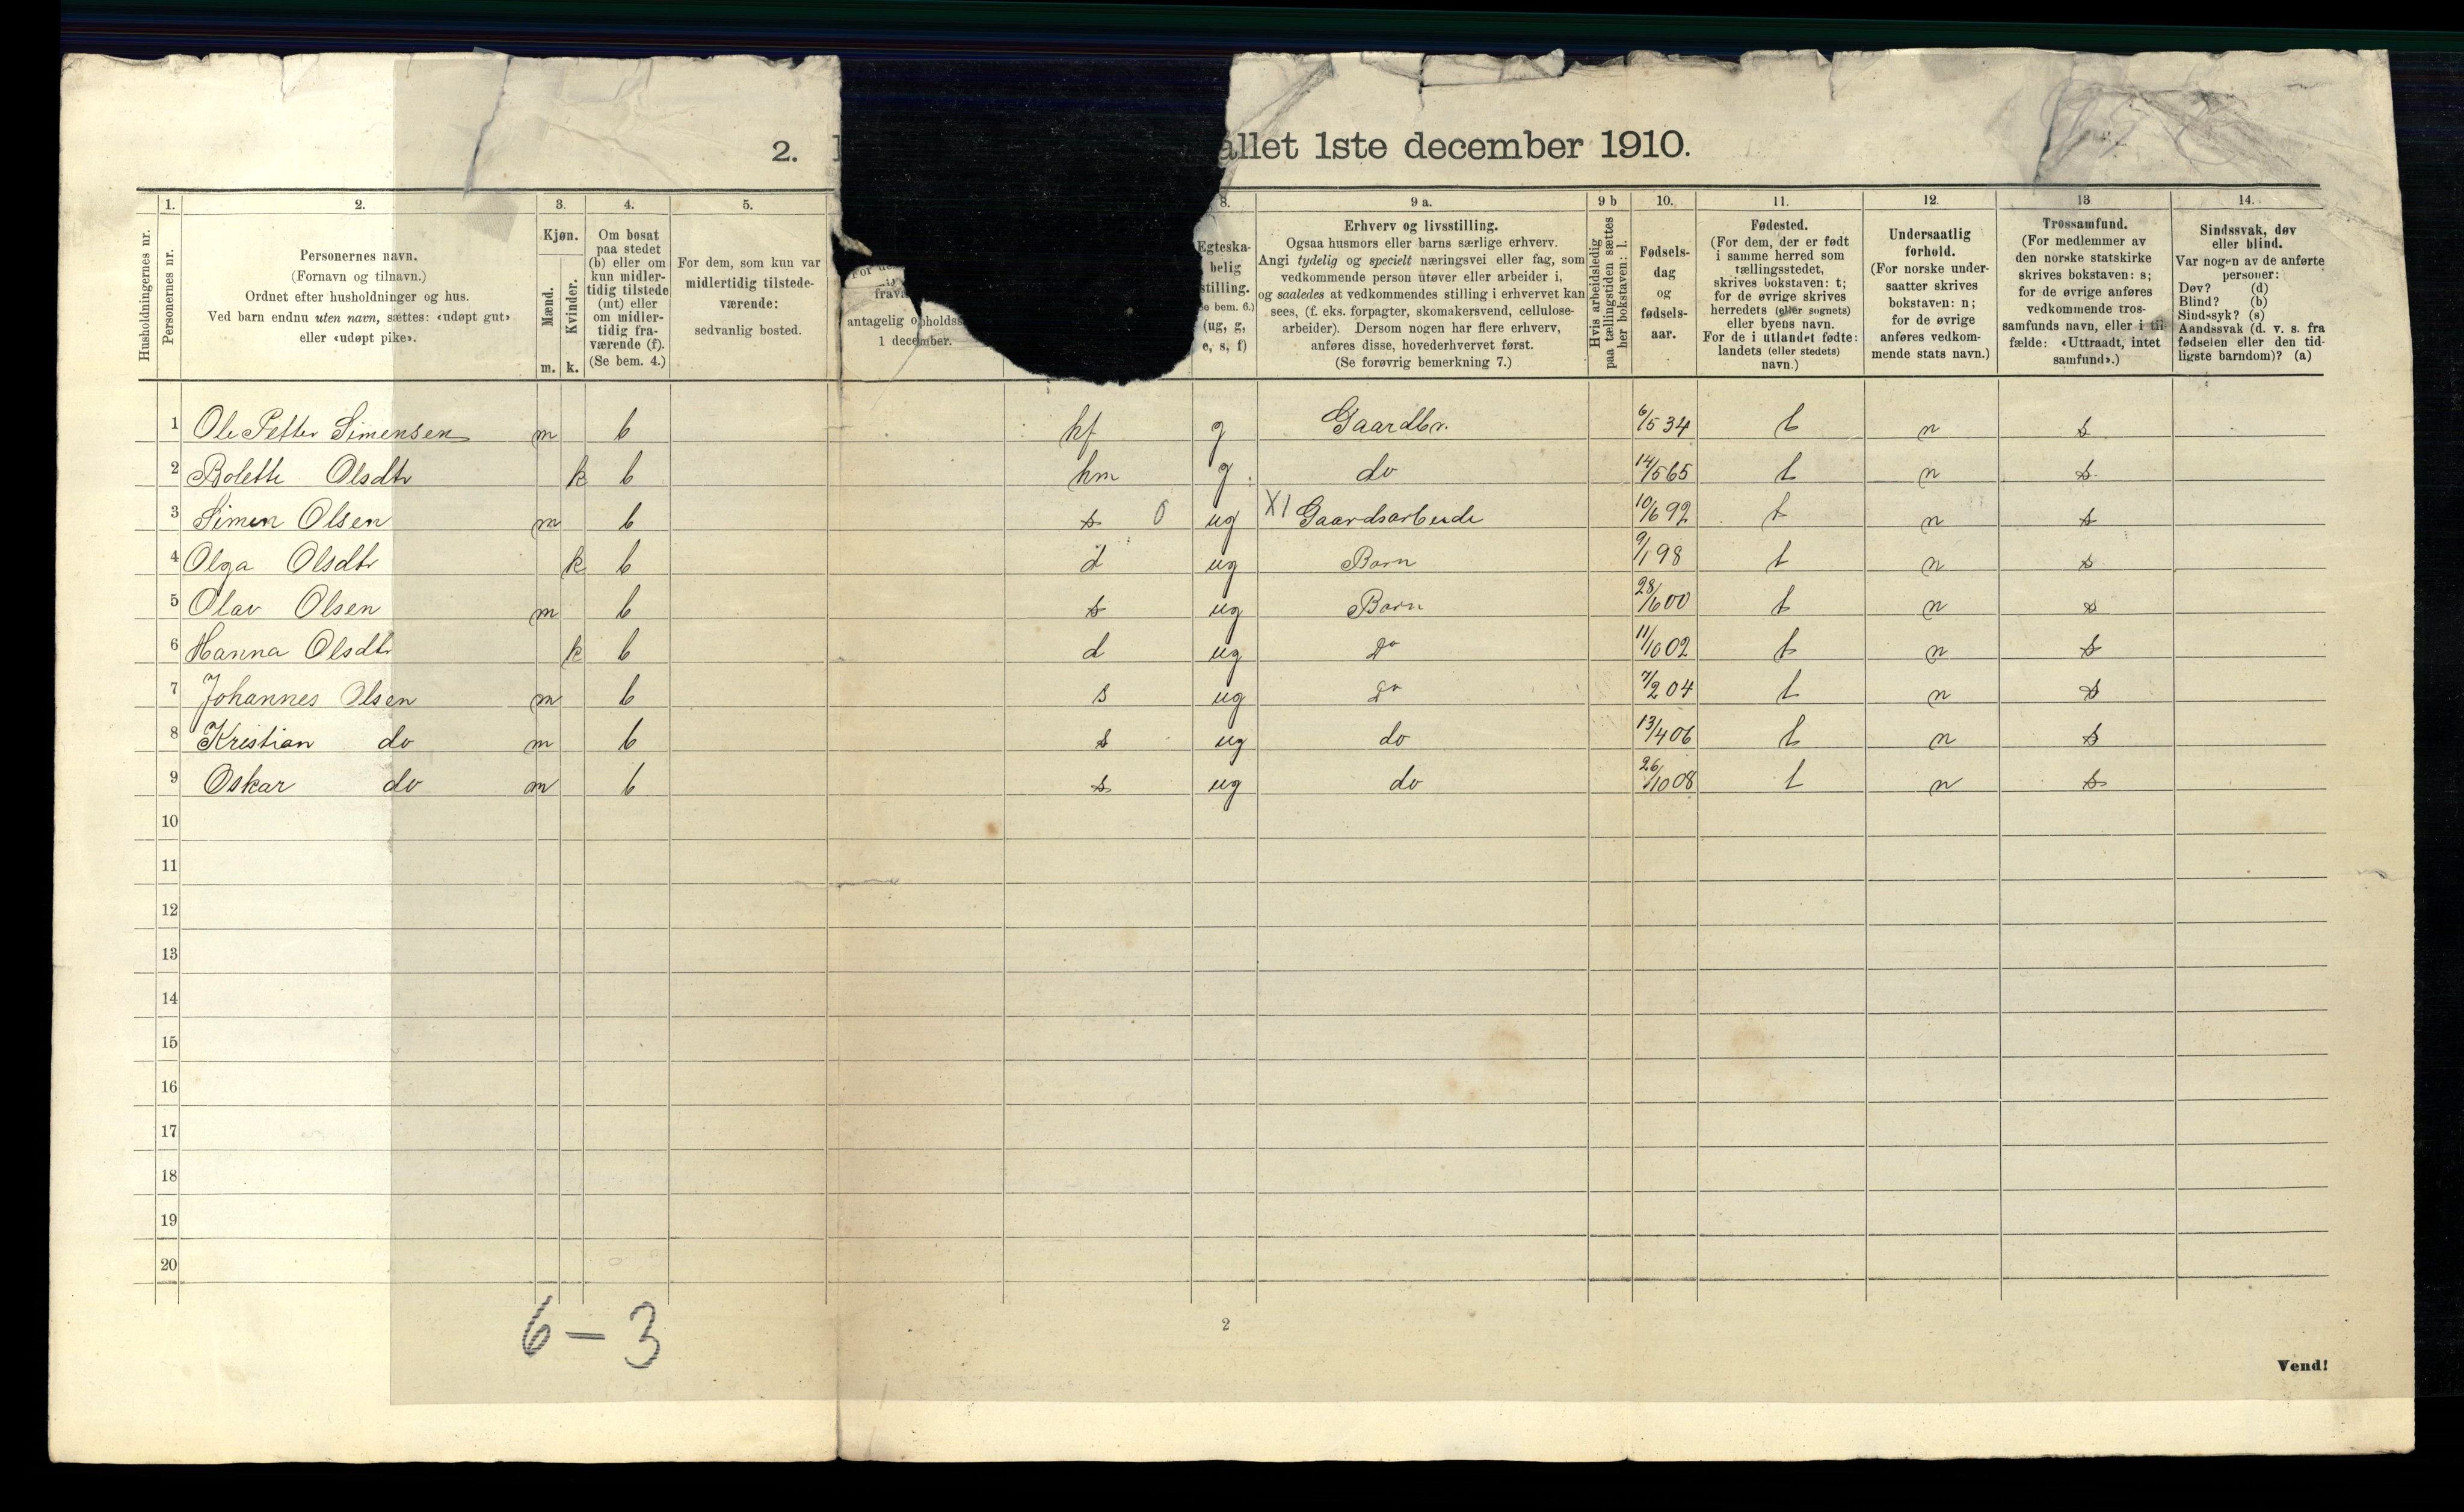 2. ållet 1ste december 1910.
1. 2. 3. 4. 5. 8. 9 a. 9 b 10. 11. 12. 13 14.
Husholdningernes nr.
Personernes nr.
Personernes navn.
(Fornavn og tilnavn.)
Ordnet efter husholdninger og hus.
Ved barn endnu uten navn, sættes: «udøpt gut»
eller «udøpt pike».
Kjøn.
Mænd.
Kvinder.
m. k.
Om bosat
paa stedet
(b) eller om
kun midler-
tidig tilstede
(mt) eller
om midler-
tidig fra-
værende (f).
(Se bem. 4.)
For dem, som kun var
midlertidig tilstede-
værende:
sedvanlig bosted.
antagelig opholdss
1 december.
Egteska-
belig
stilling.
(Se bem. 6.)
(ug, g,
e, s, f)
Erhverv og livsstilling.
Ogsaa husmors eller barns særlige erhverv.
Angi tydelig og specielt næringsvei eller fag, som
vedkommende person utøver eller arbeider i,
og saaledes at vedkommendes stilling i erhvervet kan
sees, (f. eks. forpagter, skomakersvend, cellulose-
arbeider). Dersom nogen har flere erhverv,
anføres disse, hovederhvervet først.
(Se forøvrig bemerkning 7.)
Hvis arbeidsledig
paa tællingstiden sættes
her bokstaven: l.
Fødsels-
dag
og
fødsels-
aar.
Fødested.
(For dem, der er født
i samme herred som
tællingsstedet,
skrives bokstaven: t;
for de øvrige skrives
herredets (eller sognets)
eller byens navn.
For de i utlandet fødte:
landets (eller stedets)
navn.)
Undersaatlig
forhold.
(For norske under-
saatter skrives
bokstaven: n;
for de øvrige
anføres vedkom-
mende stats navn.)
Trossamfund.
(For medlemmer av
den norske statskirke
skrives bokstaven: s;
for de øvrige anføres
vedkommende tros-
samfunds navn, eller i til-
fælde: «Uttraadt, intet
samfund».)
Sindssvak, døv
eller blind.
Var nogen av de anførte
personer:
Døv? (d)
Blind? (b)
Sindssyk? (s)
Aandssvak (d. v. s. fra
fødselen eller den tid-
ligste barndom)? (a)
1 Ole Petter Simensen m b hf g Gaardbr. 6/5 34 t n s
2 Bolette Olsdtr k b hm g do 14/5 65 t n s
3 Simen Olsen m b s 0 ug X1 Gaardsarbeide 10/6 92 t n s
4 Olga Olsdtr k b d ug Barn 9/1 98 t n s
5 Olav Olsen m b s ug Barn 28/6 00 t n s
6 Hanna Olsdtr k b d ug do 11/10 02 t n s
7 Johannes Olsen m b s ug do 7/2 04 t n s
8 Kristian do m b s ug do 13/4 06 t n s
9 Oskar do m b s ug do 26/10 08 t n s
10
11
12
13
14
15
16
17
18
19
20
6 – 3
2
Vend!